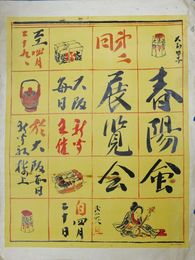 春陽会
第二回
展覧会
大阪毎日
新聞
主催
自四月
二十日
至四月
於大阪毎日
新聞社
楼上